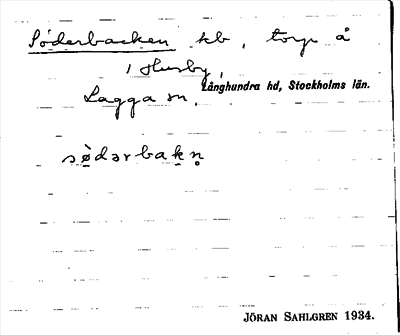 Söderbacken kb, torp å
1 Husby,
Lagga sn, Långhundra hd, Stockholms län.
sø̀dərbakn̥
JÖRAN SAHLGREN 1934.